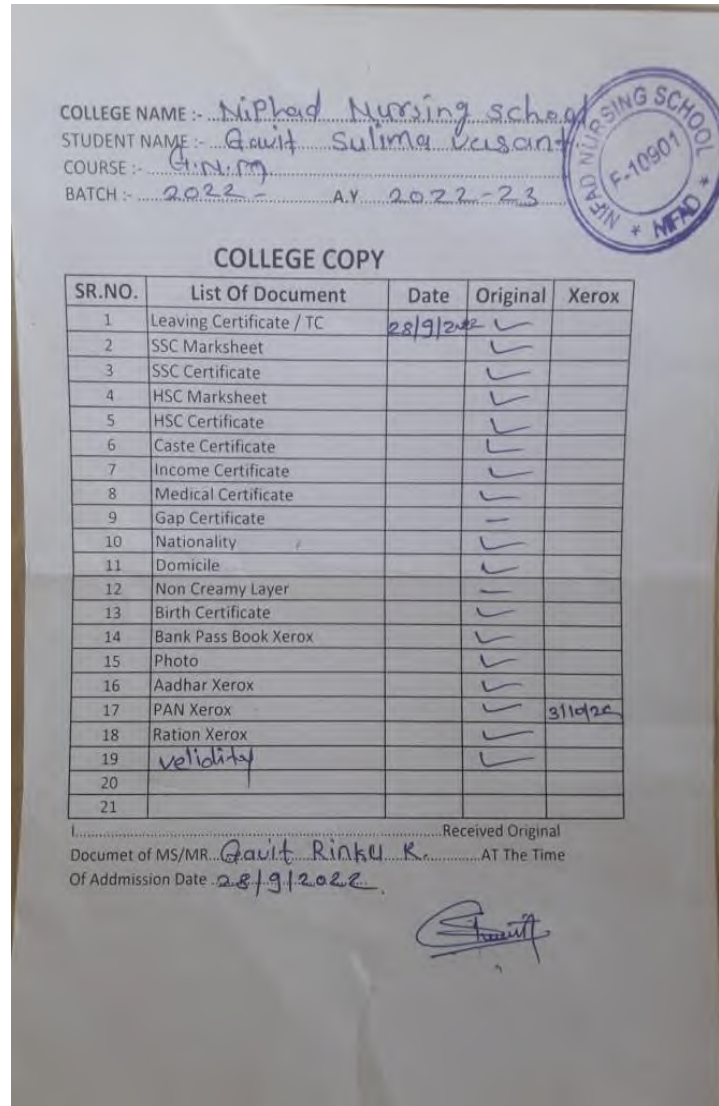 COLLEGE NAME :- Niphad Nursing school
STUDENT NAME :- Gavit Sulima Vasant
COURSE :- G.N.M
BATCH :- 2022 - A.Y 2022-23
NIFAD NURSING SCHOOL * NIFAD *
F-10901
COLLEGE COPY
SR.NO. List Of Document Date Original Xerox
1 Leaving Certificate / TC 28/9/2022 ✓
2 SSC Marksheet ✓
3 SSC Certificate ✓
4 HSC Marksheet ✓
5 HSC Certificate ✓
6 Caste Certificate ✓
7 Income Certificate ✓
8 Medical Certificate ✓
9 Gap Certificate —
10 Nationality ✓
11 Domicile ✓
12 Non Creamy Layer —
13 Birth Certificate ✓
14 Bank Pass Book Xerox ✓
15 Photo ✓
16 Aadhar Xerox ✓
17 PAN Xerox ✓
18 Ration Xerox ✓
19 velidity ✓
20
21
I.......Received Original
Documet of MS/MR...Gavit Rinku K.......AT The Time
Of Addmission Date 28/9/2022